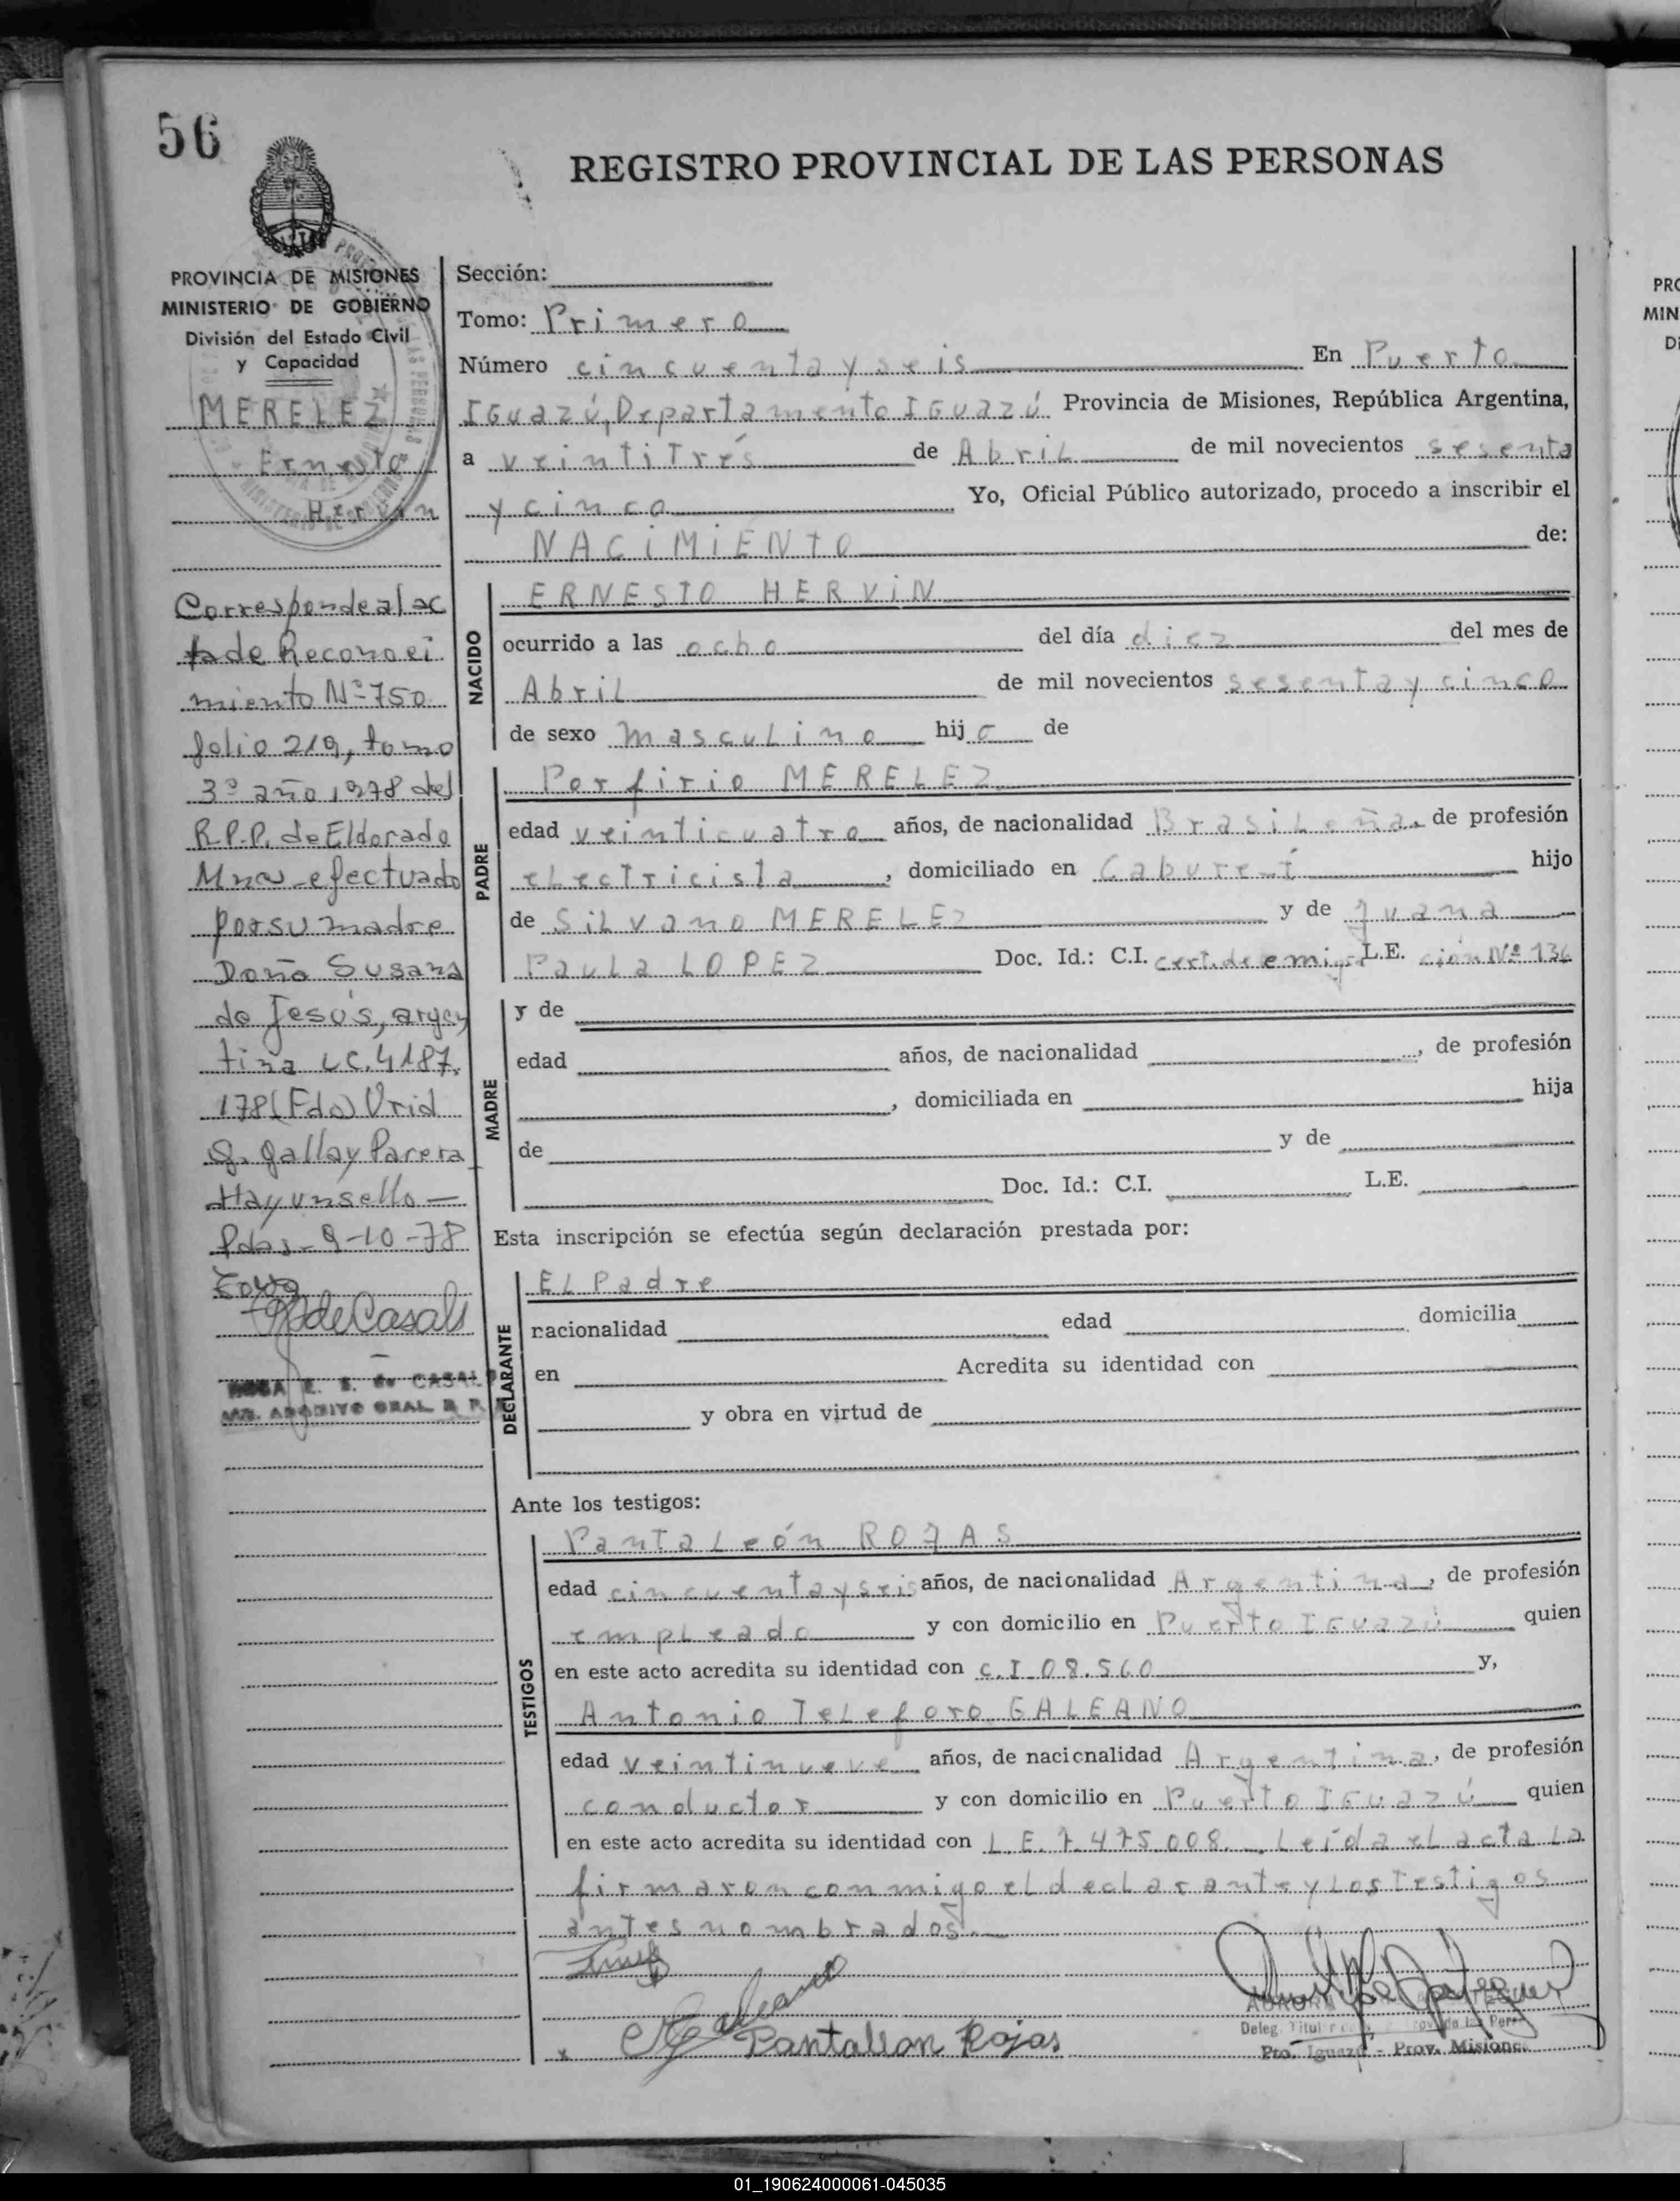 56
REGISTRO PROVINCIAL DE LAS PERSONAS
PROVINCIA DE MISIONES
MINISTERIO DE GOBIERNO
División del Estado Civil
y Capacidad
MERELEZ
Ernesto
Hervin
Corresponde al ac
ta de Reconoci
miento Nº 750
folio 219, tomo
3º año 1978 del
R.P.P. de Eldorado
Mnes-efectuado
por su madre
Doña Susana
de Jesús, argen
tina LC. 4187.
178 (Fdo) Urid
G. Gallay Parera
Hay un sello —
Pdas-9-10-78
de Casals
ROSA E. S. de CASALS
Sección:
Tomo: Primero
Número cincuenta y seis En Puerto
IGuazú, Departamento IGuazú Provincia de Misiones, República Argentina,
a veintitrés de Abril de mil novecientos sesenta
y cinco Yo, Oficial Público autorizado, procedo a inscribir el
NACIMIENTO de:
NACIDO
ERNESTO HERVIN
ocurrido a las ocho del día diez del mes de
Abril de mil novecientos sesenta y cinco
de sexo masculino hijo de
PADRE
Porfirio MERELEZ
edad veinticuatro años, de nacionalidad Brasileña, de profesión
electricista, domiciliado en Cabureí hijo
de Silvano MERELEZ y de Juana
Paula LOPEZ Doc. Id.: C.I. cert. de emigra L.E. ción Nº 136
MADRE
y de
edad años, de nacionalidad , de profesión
, domiciliada en hija
de y de
Doc. Id.: C.I. L.E.
Esta inscripción se efectúa según declaración prestada por:
DECLARANTE
El Padre
nacionalidad edad domicilia
en Acredita su identidad con
y obra en virtud de
Ante los testigos:
TESTIGOS
Pantaleón ROJAS
edad cincuenta y seis años, de nacionalidad Argentina, de profesión
empleado y con domicilio en Puerto IGuazú quien
en este acto acredita su identidad con C.I. 08.560 y,
Antonio Teleforo GALEANO
edad veintinueve años, de nacionalidad Argentina, de profesión
conductor y con domicilio en Puerto IGuazú quien
en este acto acredita su identidad con L.E. 7.475.008. Leída el acta la
firmaron conmigo el declarante y los testigos
antes nombrados.
Galeano
Pantalion Rojas
AURORA
Deleg. Titular
Pto. Iguazú - Prov. Misiones
01_190624000061-045035